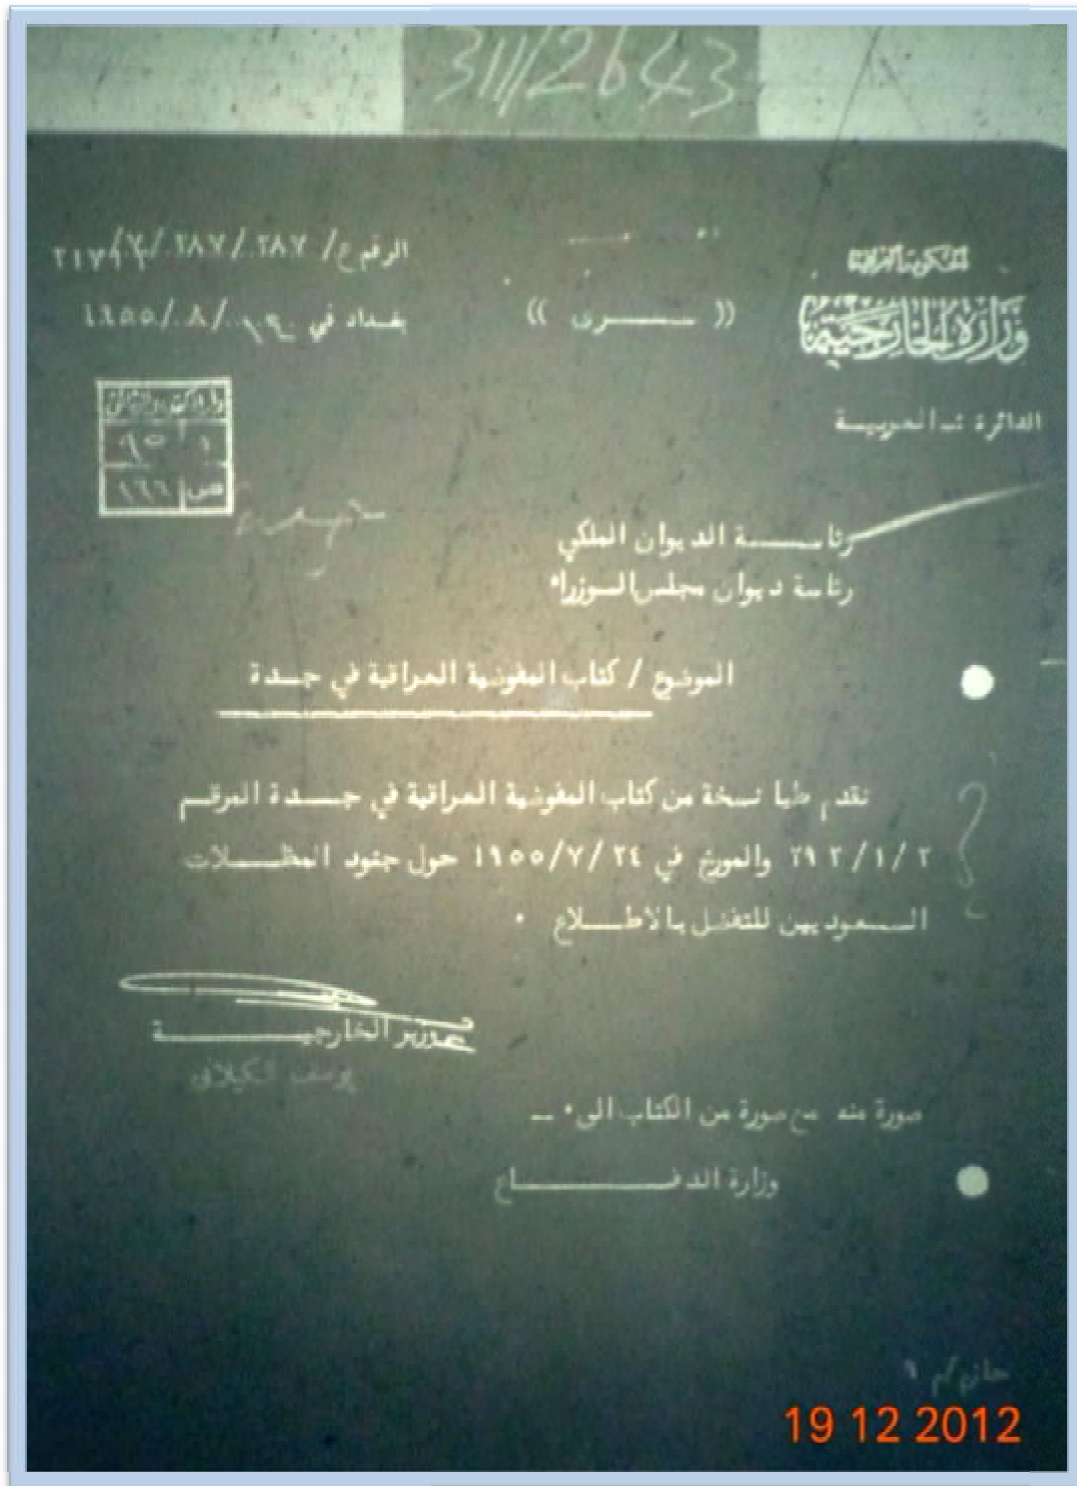 311/2643
الحكومة العراقية
وزارة الخارجية
الدائرة العربية
(( سرى ))
الرقم ع/ ٢٨٧/٢٨٧/
بغداد في /٨/١٩٥٥
و
٩٥
ص ١٦٦
رئاسة الديوان الملكي
رئاسة ديوان مجلس الوزراء
الموضوع / كتاب المفوضية العراقية في جدة
نقدم طيا نسخة من كتاب المفوضية العراقية في جدة المرقم
٢٩٢/١/٢ والمورخ في ٢٤/٧/١٩٥٥ حول جنود المظلات
السعوديين للتفضل بالاطلاع .
وزير الخارجية
يوسف الكيلاني
صورة منه مع صورة من الكتاب الى . –
وزارة الدفاع
19 12 2012